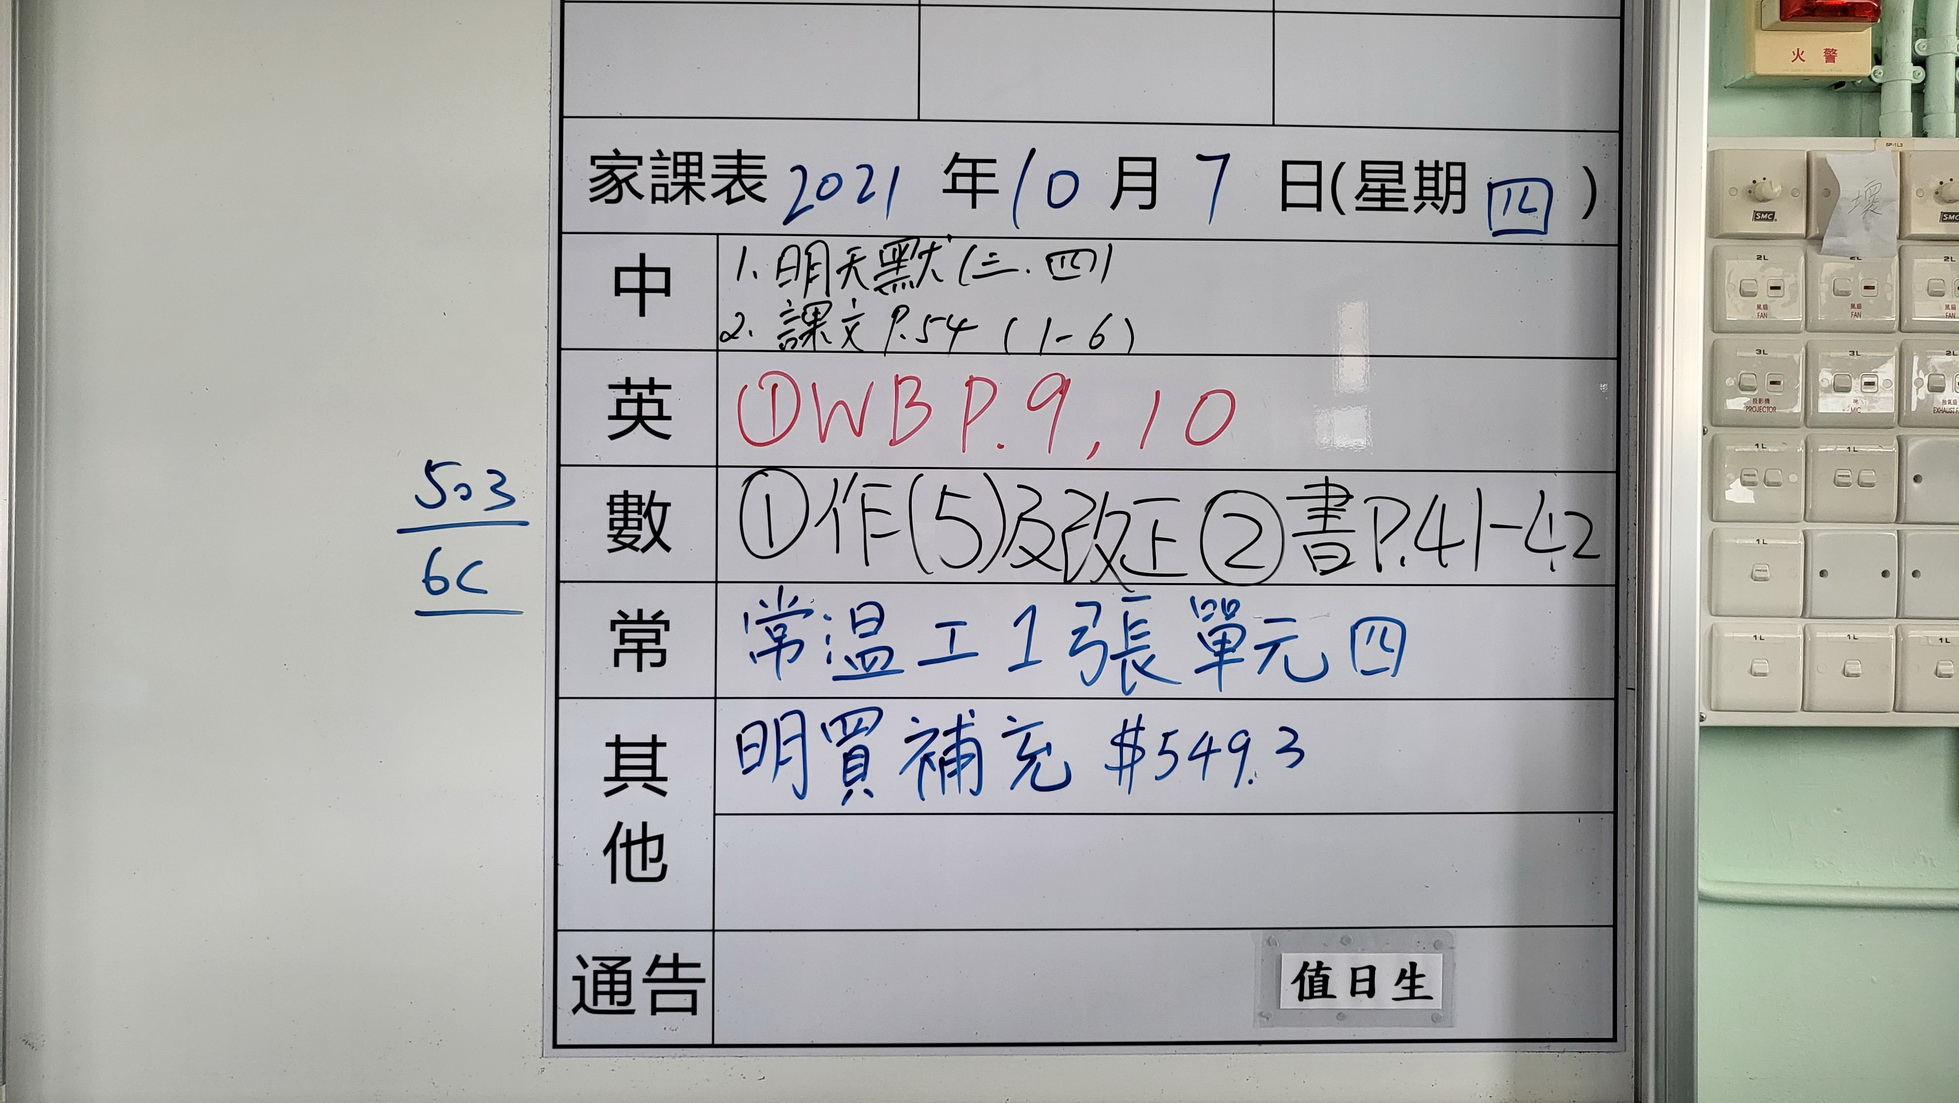 火 警
家課表 2021 年 10 月 7 日(星期 四 )
中
1. 明天默(三、四)
2. 課文 P.54 (1-6)
英
①WB P.9, 10
503
6C
數
①作(5)及改正 ②書P.41-42
常
常温工1張單元四
其他
明買補充 $549.3
通告
值日生
壞
SMC
2L
2L
風扇
FAN
風扇
FAN
3L
3L
投影機
PROJECTOR
MIC
1L
1L
1L
1L
1L
1L